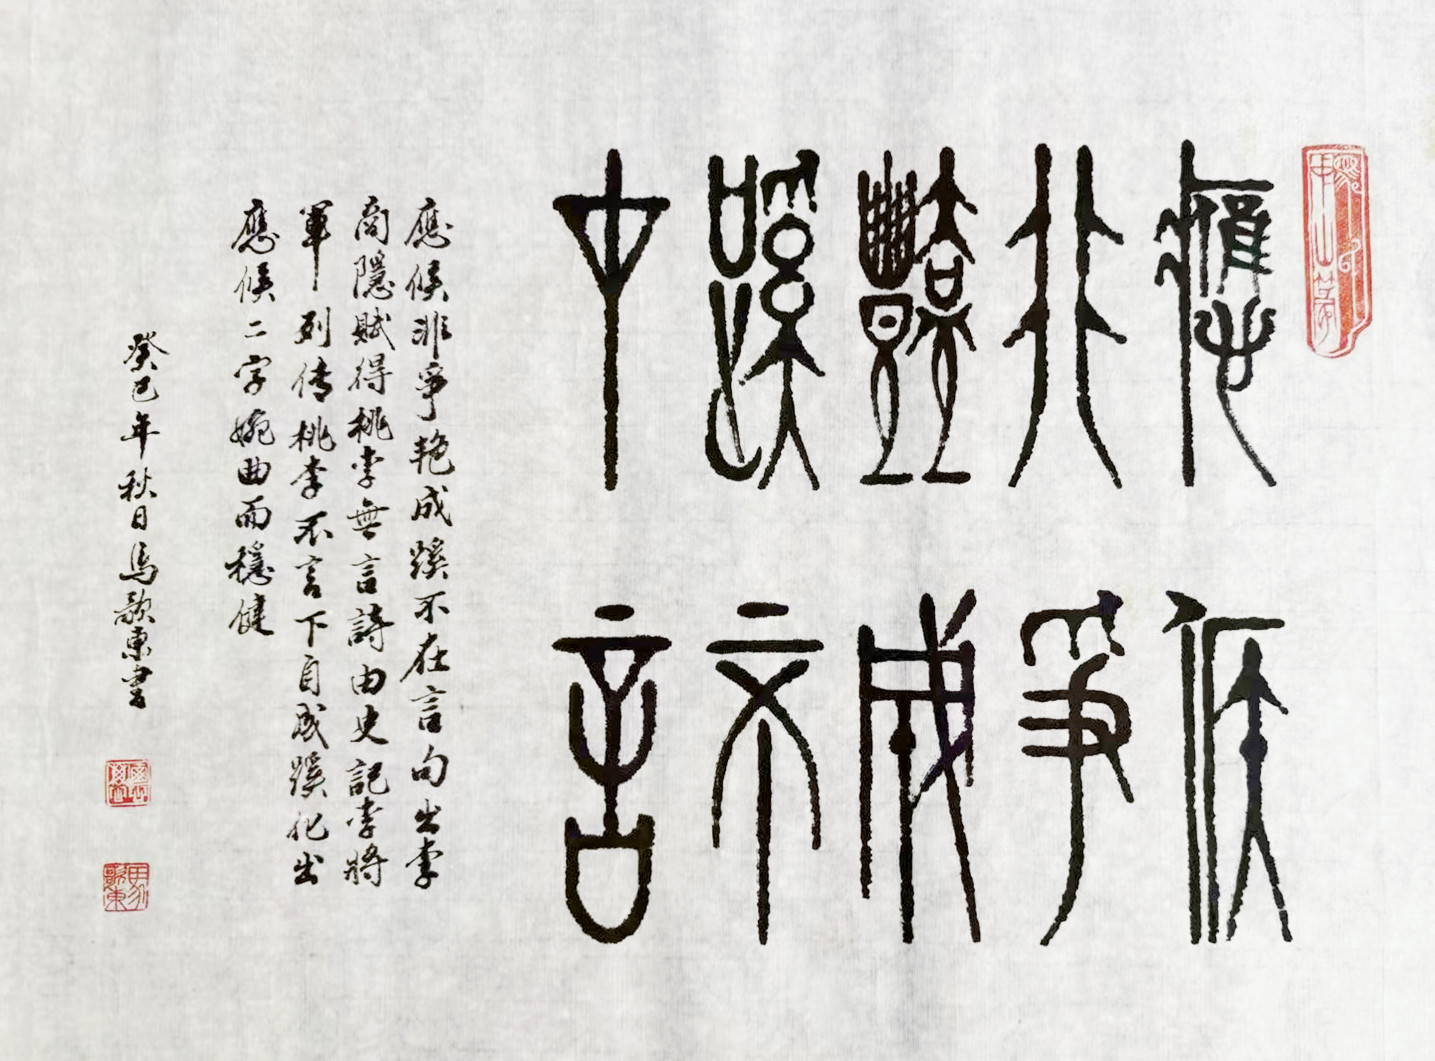 應候
非爭
艷成
蹊不
在言
應候非爭艳成蹊不在言句出李
商隱賦得桃李無言詩由史記李將
軍列传桃李不言下自成蹊化出
應候二字婉曲而穩健
癸巳年秋日馬歌東書